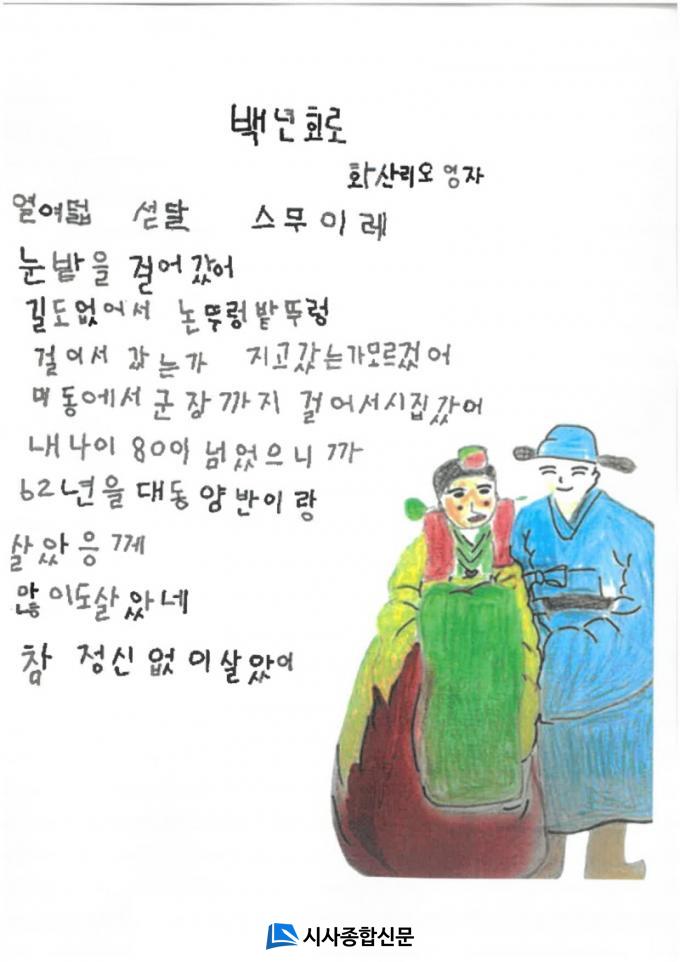 백년회로
화산리오영자
열여덟 섣달 스무이레
눈밭을 걸어갔어
길도없어서 논뚜렁밭뚜렁
걸어서 갔는가 지고갔는가모르겠어
먹동에서 군장까지 걸어서시집갔어
내나이 80이 넘었으니까
62년을 대동양반이랑
살았응께
많이도살았네
참 정신없이살았어
시사종합신문